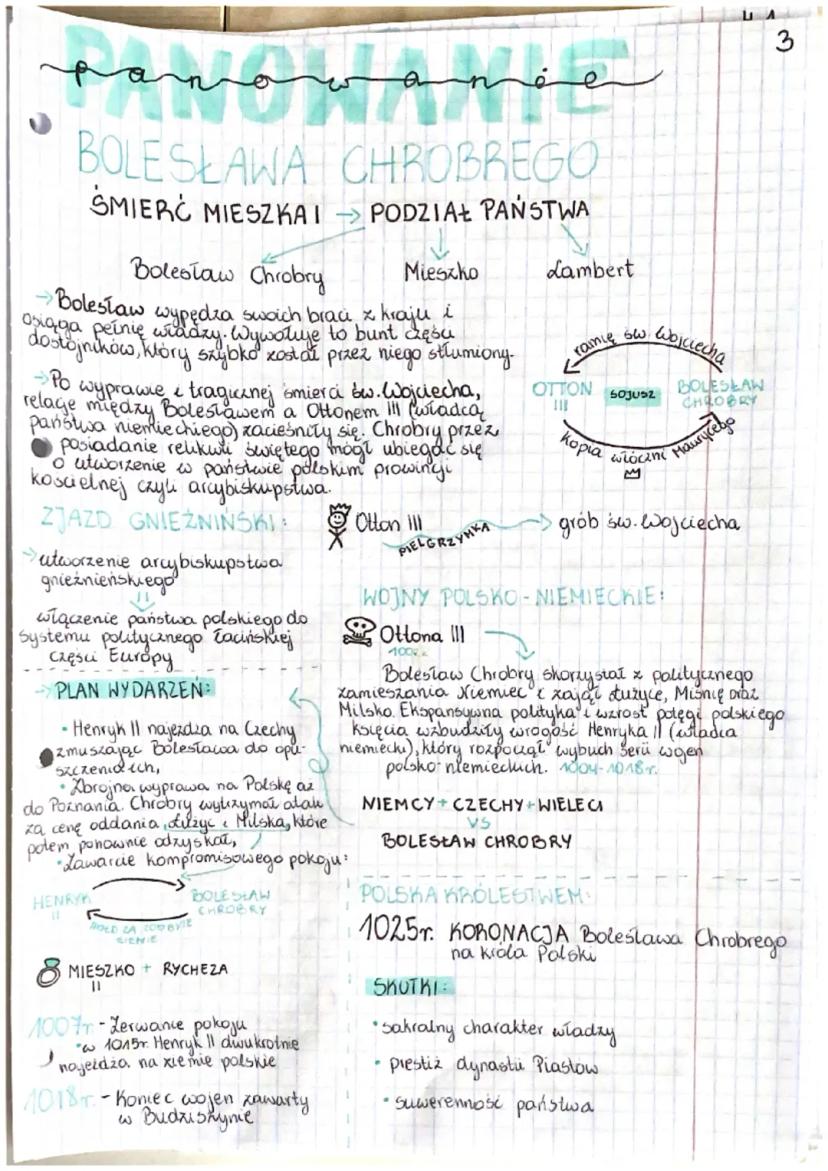 3
PANOWANIE
panowanie
BOLESŁAWA CHROBREGO
ŚMIERĆ MIESZKA I → PODZIAŁ PAŃSTWA
Bolesław Chrobry Mieszko Lambert
→ Bolesław wypędza swoich braci z kraju i
osiąga pełnię władzy. Wywołuje to bunt części
dostojników, który szybko został przez niego stłumiony.
→ Po wyprawie i tragicznej śmierci św. Wojciecha,
relacje między Bolesławem a Ottonem III (władcą
państwa niemieckiego) zacieśniły się. Chrobry przez
posiadanie relikwii świętego mógł ubiegać się
o utworzenie w państwie polskim prowincji
kościelnej czyli arcybiskupstwa.
ramię św. Wojciecha
OTTON III SOJUSZ BOLESŁAW CHROBRY
kopia włóczni Maurycego
ZJAZD GNIEŹNIŃSKI:
Otton III PIELGRZYMKA → grób św. Wojciecha
→ utworzenie arcybiskupstwa
gnieźnieńskiego
włączenie państwa polskiego do
systemu politycznego łacińskiej
części Europy
WOJNY POLSKO-NIEMIECKIE:
Ottona III
Bolesław Chrobry skorzystał z politycznego
zamieszania Niemiec i zajął Łużyce, Miśnię oraz
Milsko. Ekspansywna polityka i wzrost potęgi polskiego
księcia wzbudziły wrogość Henryka II (władca
niemiecki), który rozpoczął wybuch serii wojen
polsko-niemieckich. 1004-1018r.
NIEMCY + CZECHY + WIELECI
VS
BOLESŁAW CHROBRY
→ PLAN WYDARZEŃ:
• Henryk II najeżdża na Czechy
zmuszając Bolesława do opu-
szczenia ich,
• Zbrojna wyprawa na Polskę aż
do Poznania. Chrobry wytrzymał atak
za cenę oddania Łużyc i Milska, które
potem ponownie odzyskał,
• Zawarcie kompromisowego pokoju:
HENRYK II BOLESŁAW CHROBRY
HOŁD ZA ZDOBYTE
ZIEMIE
MIESZKO II + RYCHEZA
1007r. - Zerwanie pokoju
• w 1015r. Henryk II dwukrotnie
najeżdża na ziemie polskie
1018r. - Koniec wojen zawarty
w Budziszynie
POLSKA KRÓLESTWEM:
1025r. KORONACJA Bolesława Chrobrego
na króla Polski
SKUTKI:
• sakralny charakter władzy
• prestiż dynastii Piastów
• suwerenność państwa